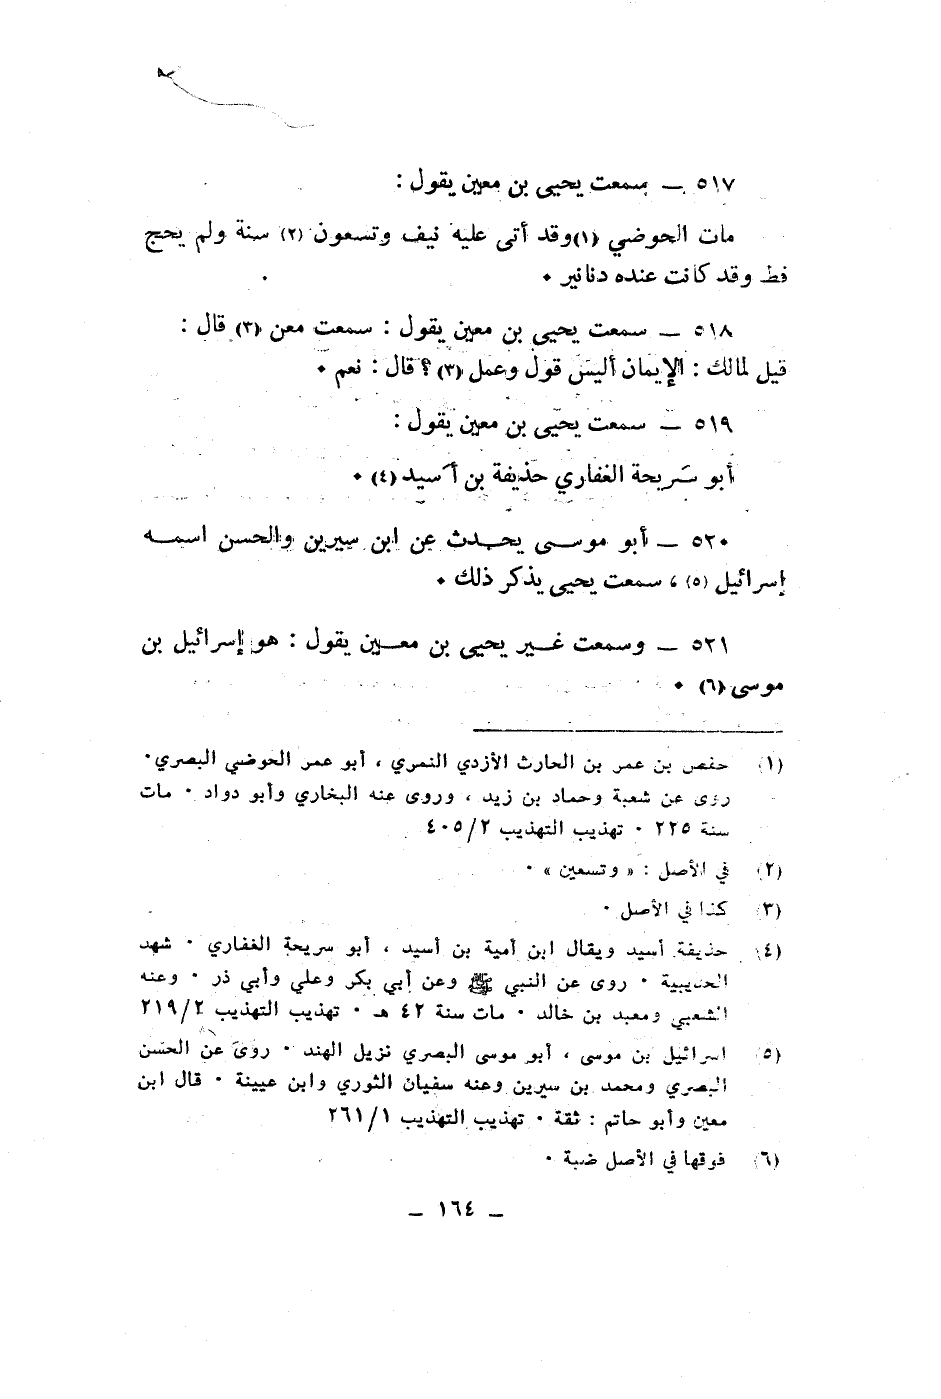 ٥١٧ ــ سمعت يحيى بن معين يقول :
مات الحوضي (١)وقد أتى عليه نيف وتسعون (٢) سنة ولم يحج
قط وقد كانت عنده دنانير ٠
٥١٨ ــ سمعت يحيى بن معين يقول : سمعت معن (٣) قال :
قيل لمالك : الإيمان أليس قول وعمل (٣) ؟ قال : نعم ٠
٥١٩ ــ سمعت يحيى بن معين يقول :
أبو سَريحة الغفاري حذيفة بن أسيد (٤) ٠
٥٢٠ ــ أبو موسى يحدث عن ابن سيرين والحسن اسمه
إسرائيل (٥) ، سمعت يحيى يذكر ذلك ٠
٥٢١ ــ وسمعت غير يحيى بن معين يقول : هو إسرائيل بن
موسى (٦) ٠
(١) حفص بن عمر بن الحارث الأزدي النمري ، أبو عمر الحوضي البصري٠
روى عن شعبة وحماد بن زيد ، وروى عنه البخاري وأبو دواد ٠ مات
سنة ٢٢٥ ٠ تهذيب التهذيب ٤٠٥/٢
(٢) في الأصل : « وتسعين » ٠
(٣) كذا في الأصل ٠
(٤) حذيفة أسيد ويقال ابن أمية بن أسيد ، أبو سريحة الغفاري ٠ شهد
الحديبية ٠ روى عن النبي ﷺ وعن أبي بكر وعلي وأبي ذر ٠ وعنه
الشعبي ومعبد بن خالد ٠ مات سنة ٤٢ هـ ٠ تهذيب التهذيب ٢١٩/٢
(٥) اسرائيل بن موسى ، أبو موسى البصري نزيل الهند ٠ روى عن الحسن
البصري ومحمد بن سيرين وعنه سفيان الثوري وابن عيينة ٠ قال ابن
معين وأبو حاتم : ثقة ٠ تهذيب التهذيب ٢٦١/١
(٦) فوقها في الأصل ضبة ٠
ــ ١٦٤ ــ